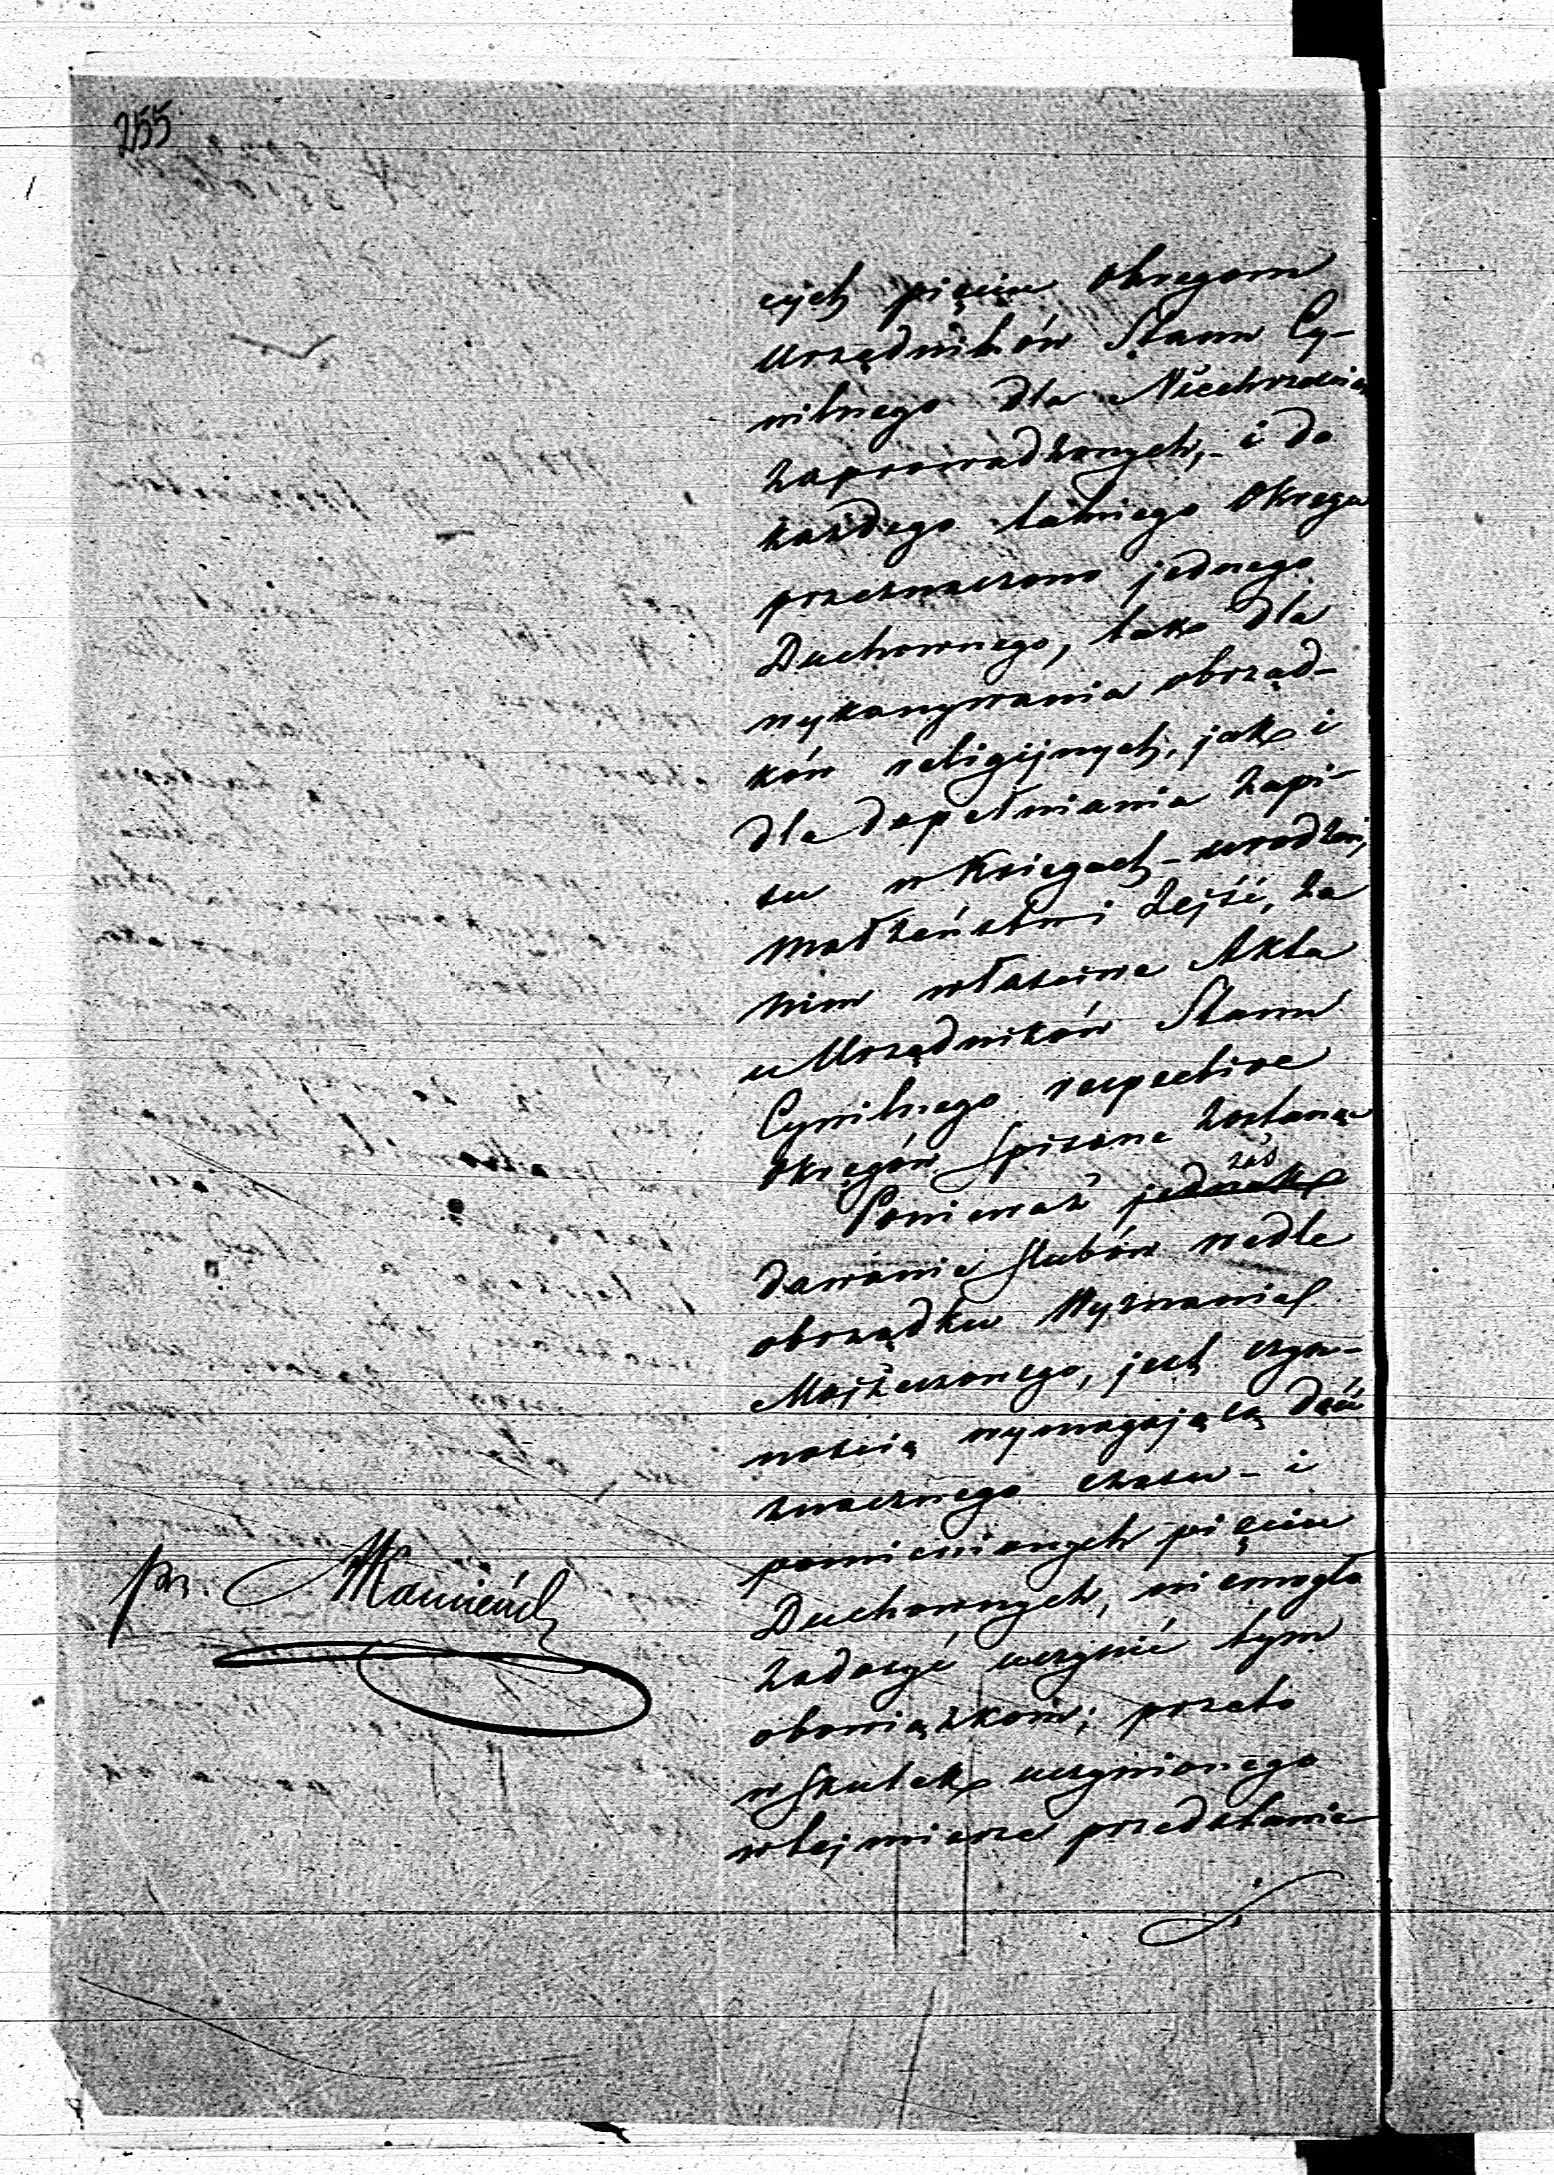 255
cych pięciu Okregom
Urzędników Stanu Cy-
wilnego dla Niechrześcian
zaprowadzonych, - i do
każdego takiego Okregu
przeznaczono jednego
Duchownego, tak dla
wykonywania obrząd-
ków religijnych, jak i
dla dopełniania zapi-
su w Księgach - urodzeń,
małżeństw i Zejść, za
nim właściwe Akta
u Urzędników Stanu
Cywilnego respective
Okręgów Spisane zostaną
Ponieważ jednak zaś
dawanie ślubów wedle
obrządku Wyznania
Mojżeszowego, jest czyn-
nością wymagającą dość
znacznego czasu - i
pomienionych pięciu
Duchownych, niemogło
zadosyć uczynić tym
obowiązkom; przeto
w skutek uczynionego
w tej mierze przedstawie
pr.